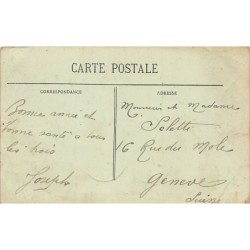 CARTE POSTALE
CORRESPONDANCE
ADRESSE
Bonne année et
bonne santé a tous
les trois
Joseph
Monsieur et Madame
16 Rue des Mole
Geneve
Suisse